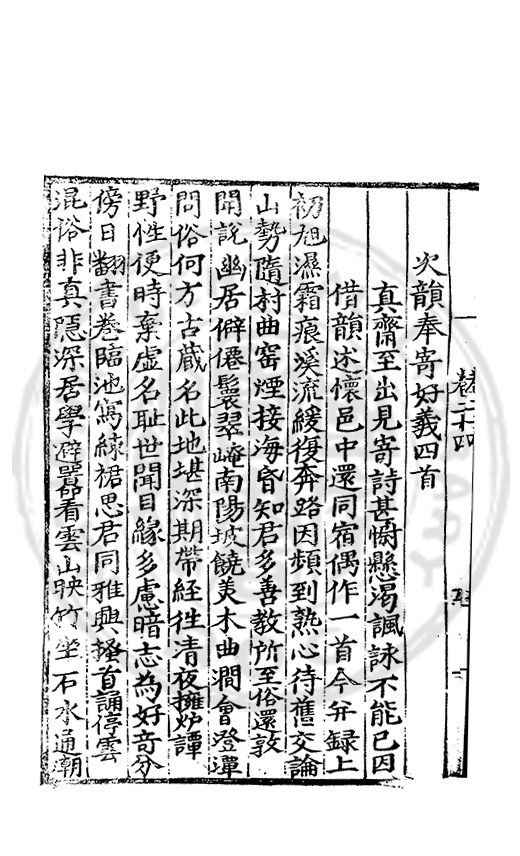 卷二十四
次韻奉寄好義四首
真齋至出見寄詩甚慰懸渴諷詠不能已因
借韻述懷邑中還同宿偶作一首今并録上
初旭濕霜痕溪流緩復奔路因頻到熟心待舊交論
山勢隨村曲窑煙接海昏知君多善教所至俗還敦
聞說幽居僻僊鬟翠崦南陽坡饒美木曲澗會澄潭
問俗何方古蔵名此地堪深期帶経徃清夜擁炉譚
野性便時棄虚名耻世聞目緣多慮暗志為好奇分
傍日翻書巻臨池寫練裙思君同雅興搔首誦停雲
混俗非真隠深居學避囂看雲山映竹坐石水通潮